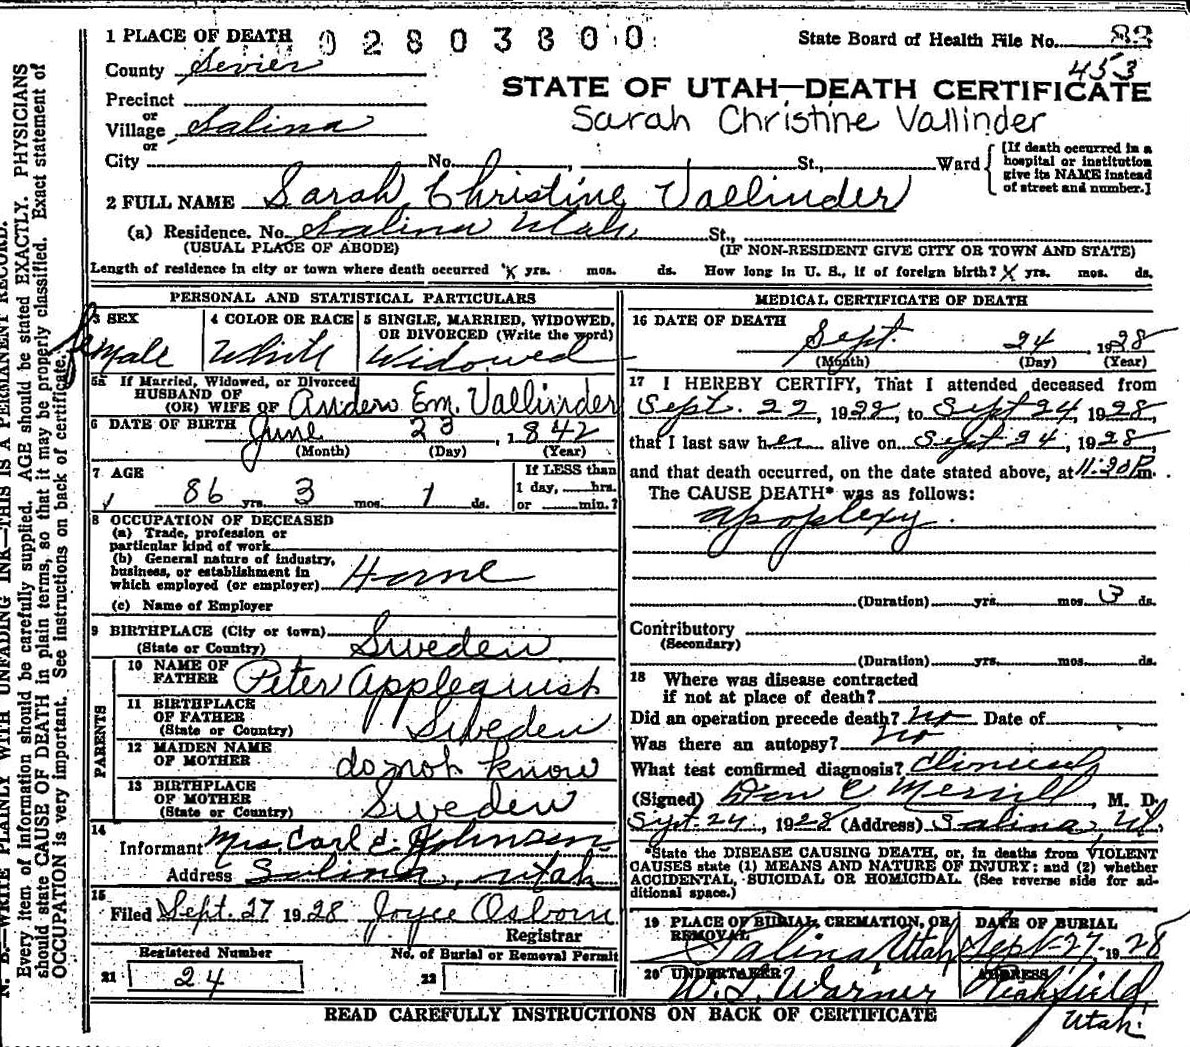 1 PLACE OF DEATH
0 2 8 0 3 8 0 0
State Board of Health File No. 82
453
County Sevier
STATE OF UTAH—DEATH CERTIFICATE
Precinct
or
Village Salina
or
Sarah Christine Vallinder
City No. , St., Ward
[If death occurred in a
hospital or institution
give its NAME instead
of street and number.]
2 FULL NAME Sarah Christine Vallinder
(a) Residence. No. Salina Utah St.,
(USUAL PLACE OF ABODE) (IF NON-RESIDENT GIVE CITY OR TOWN AND STATE)
Length of residence in city or town where death occurred X yrs. mos. ds. How long in U. S., if of foreign birth? X yrs. mos. ds.
PERSONAL AND STATISTICAL PARTICULARS
3 SEX
feMale
4 COLOR OR RACE
White
5 SINGLE, MARRIED, WIDOWED,
OR DIVORCED (Write the word)
Widowed
5a If Married, Widowed, or Divorced
HUSBAND OF
(OR) WIFE OF Anders Em. Vallinder
6 DATE OF BIRTH June 23, 1842
(Month) (Day) (Year)
7 AGE
86 yrs. 3 mos. 1 ds.
If LESS than
1 day, hrs.
or min.?
8 OCCUPATION OF DECEASED
(a) Trade, profession or
particular kind of work
(b) General nature of industry,
business, or establishment in
which employed (or employer) Home
(c) Name of Employer
9 BIRTHPLACE (City or town)
(State or Country) Sweden
PARENTS
10 NAME OF
FATHER Peter Applequist
11 BIRTHPLACE
OF FATHER
(State or Country) Sweden
12 MAIDEN NAME
OF MOTHER do not know
13 BIRTHPLACE
OF MOTHER
(State or Country) Sweden
14
Informant Mrs. Carl E. Johnson
Address Salina, Utah
15
Filed Sept. 27 1928 Joyce Osborn
Registrar
Registered Number
21 24
No. of Burial or Removal Permit
22
MEDICAL CERTIFICATE OF DEATH
16 DATE OF DEATH
Sept. 24, 1928
(Month) (Day) (Year)
17 I HEREBY CERTIFY, That I attended deceased from
Sept. 22, 1928, to Sept 24, 1928,
that I last saw her alive on Sept 24, 1928
and that death occurred, on the date stated above, at 11:20P m.
The CAUSE DEATH* was as follows:
apoplexy.
(Duration) yrs. mos. 3 ds.
Contributory
(Secondary)
(Duration) yrs. mos. ds.
18 Where was disease contracted
if not at place of death?
Did an operation precede death? No Date of
Was there an autopsy? No
What test confirmed diagnosis? Clinical
(Signed) Don C Merrill, M. D.
Sept. 24, 1928 (Address) Salina, Ut.
*State the DISEASE CAUSING DEATH, or, in deaths from VIOLENT
CAUSES state (1) MEANS AND NATURE OF INJURY; and (2) whether
ACCIDENTAL, SUICIDAL OR HOMICIDAL. (See reverse side for ad-
ditional space.)
19 PLACE OF BURIAL, CREMATION, OR
REMOVAL
Salina, Utah
DATE OF BURIAL
Sept. 27, 1928
20 UNDERTAKER
W. L. Warner
ADDRESS
Richfield,
Utah.
READ CAREFULLY INSTRUCTIONS ON BACK OF CERTIFICATE
N. B.—WRITE PLAINLY WITH UNFADING INK—THIS IS A PERMANENT RECORD.
Every item of information should be carefully supplied. AGE should be stated EXACTLY. PHYSICIANS
should state CAUSE OF DEATH in plain terms, so that it may be properly classified. Exact statement of
OCCUPATION is very important. See instructions on back of certificate.